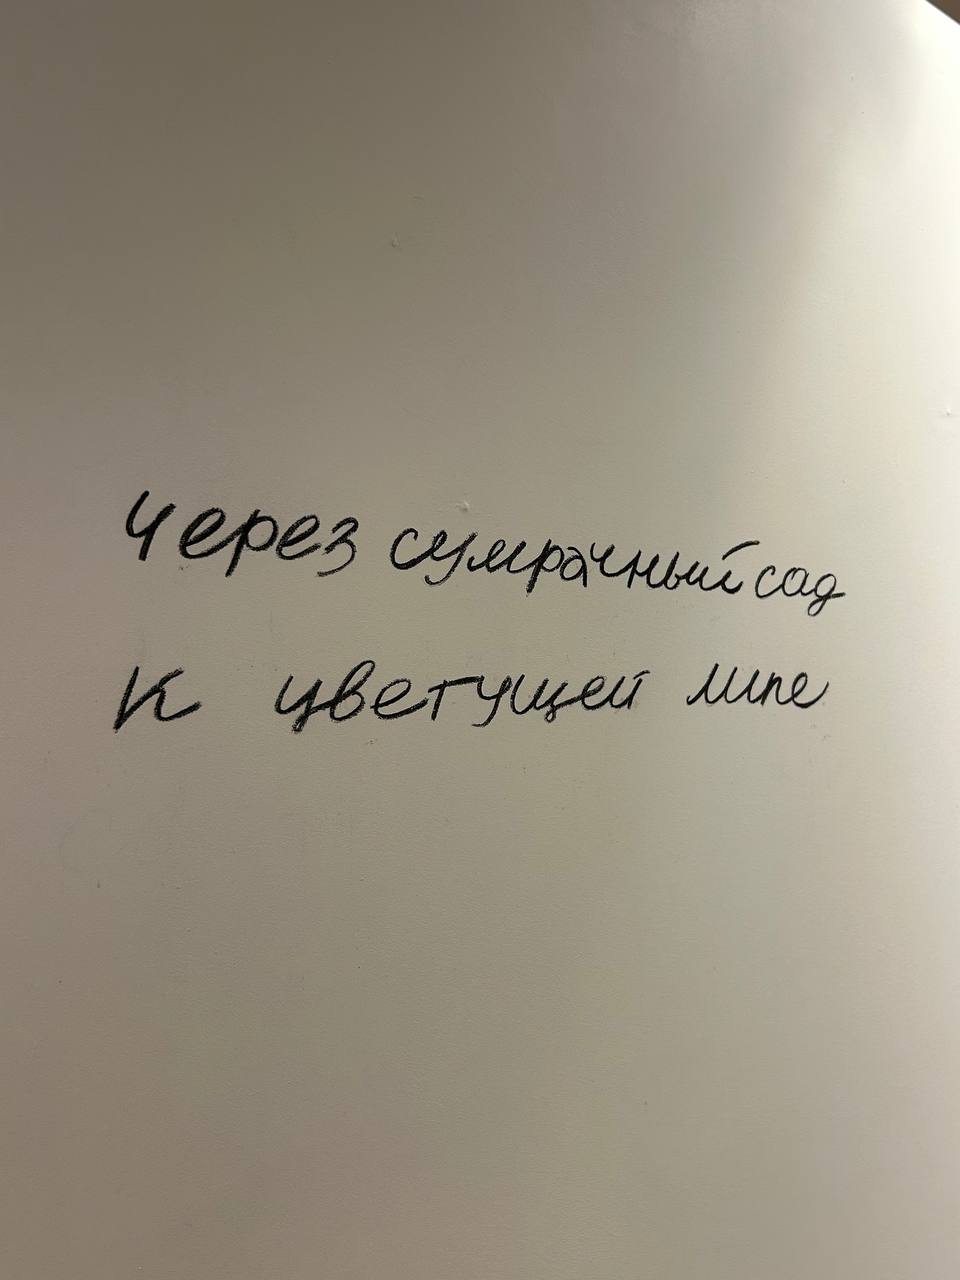 Через сумрачный сад
К цветущей липе